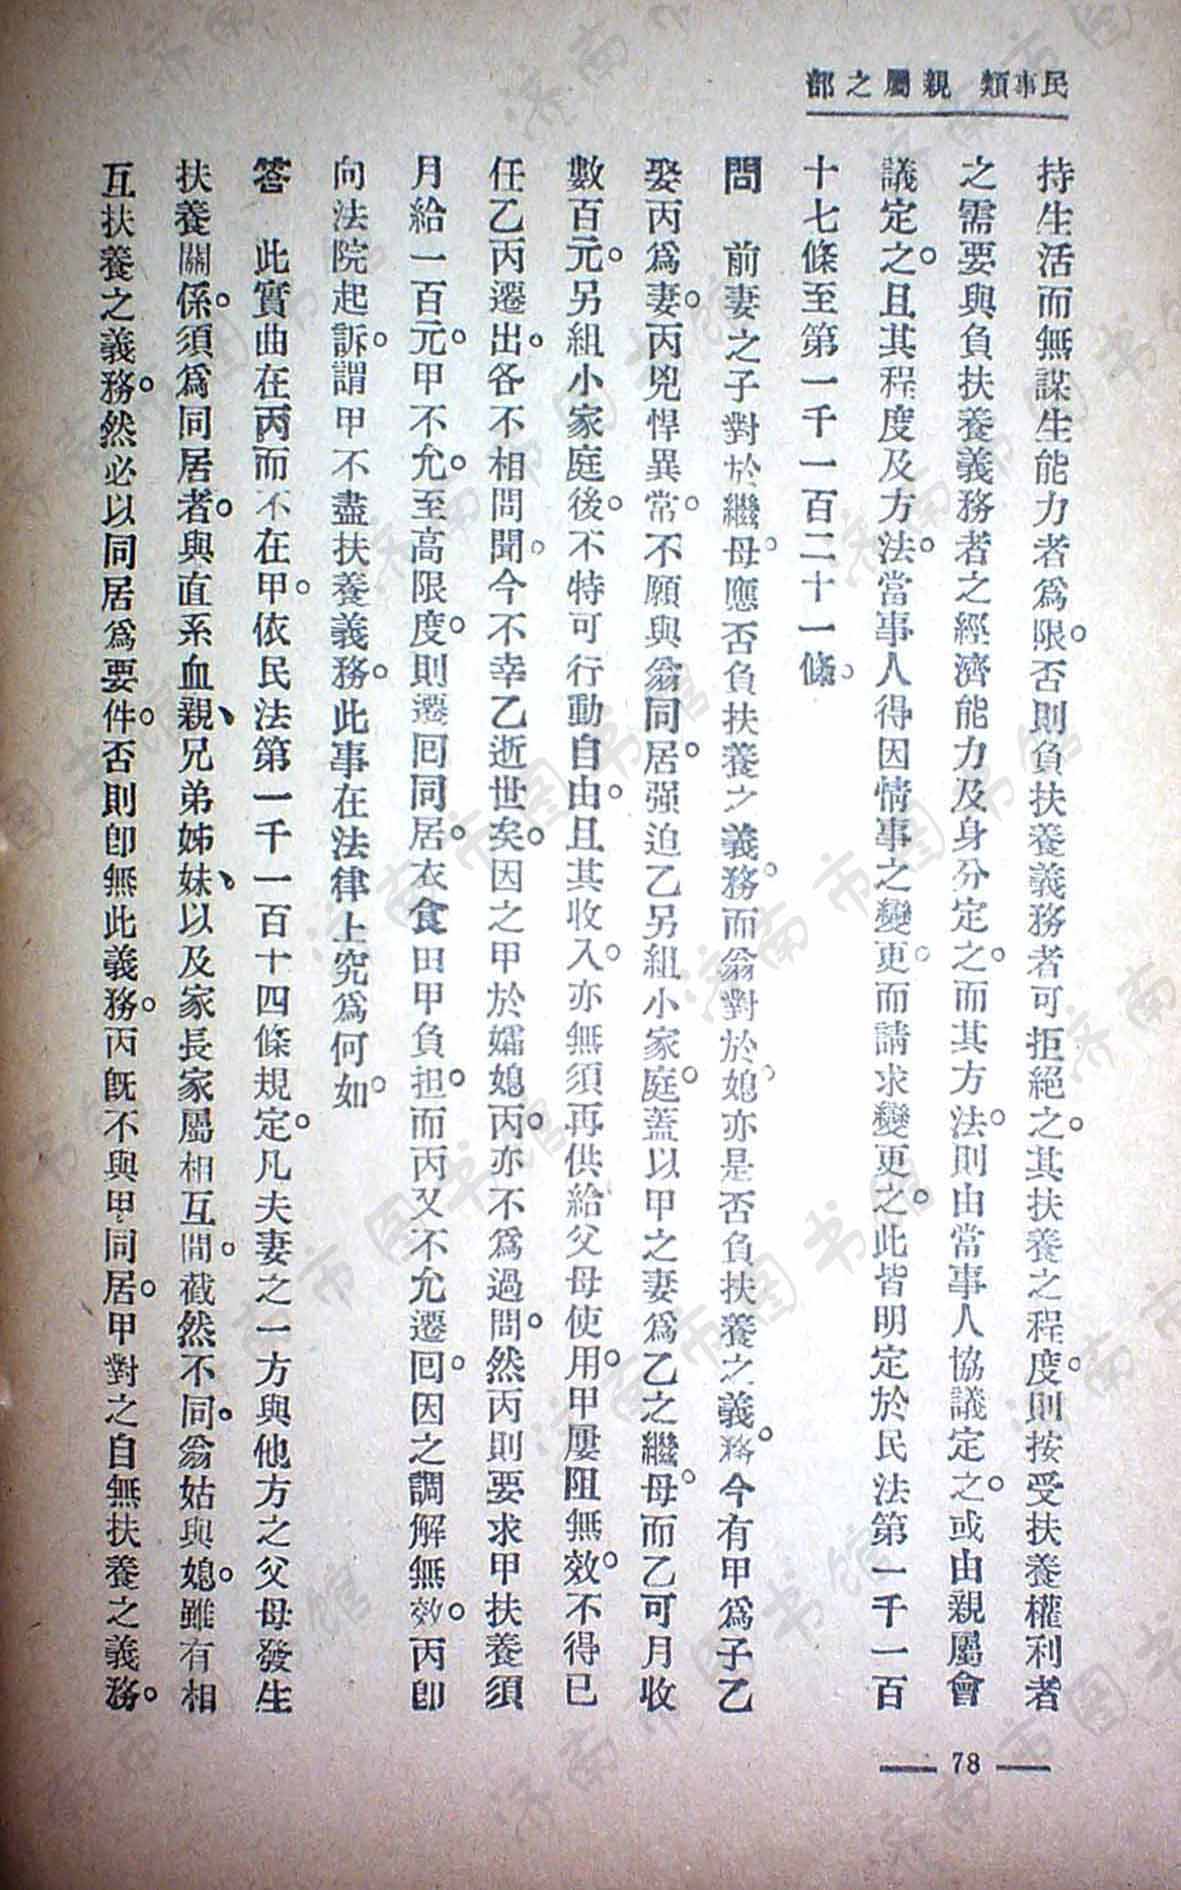 民事類 親屬之部
持生活而無謀生能力者爲限。否則負扶養義務者可拒絕之。其扶養之程度。則按受扶養權利者
之需要與負扶養義務者之經濟能力及身分定之。而其方法。則由當事人協議定之。或由親屬會
議定之。且其程度及方法。當事人得因情事之變更。而請求變更之。此皆明定於民法第一千一百
十七條至第一千一百二十一條。
問 前妻之子對於繼母。應否負扶養之義務。而翁對於媳。亦是否負扶養之義務。今有甲爲子乙
娶丙爲妻。丙兇悍異常。不願與翁同居。强迫乙另組小家庭。蓋以甲之妻爲乙之繼母。而乙可月收
數百元。另組小家庭後。不特可行動自由。且其收入。亦無須再供給父母使用。甲屢阻無效。不得已
任乙丙遷出。各不相問聞。今不幸乙逝世矣。因之甲於孀媳丙。亦不爲過問。然丙則要求甲扶養須
月給一百元。甲不允。至高限度。則遷回同居。衣食由甲負担。而丙又不允遷回。因之調解無效。丙卽
向法院起訴。謂甲不盡扶養義務。此事在法律上究爲何如。
答 此實曲在丙而不在甲。依民法第一千一百十四條規定。凡夫妻之一方與他方之父母發生
扶養關係。須爲同居者。與直系血親、兄弟姊妹、以及家長家屬相互間。截然不同。翁姑與媳。雖有相
互扶養之義務。然必以同居爲要件。否則卽無此義務。丙旣不與甲同居。甲對之自無扶養之義務。
78
济南市图书馆